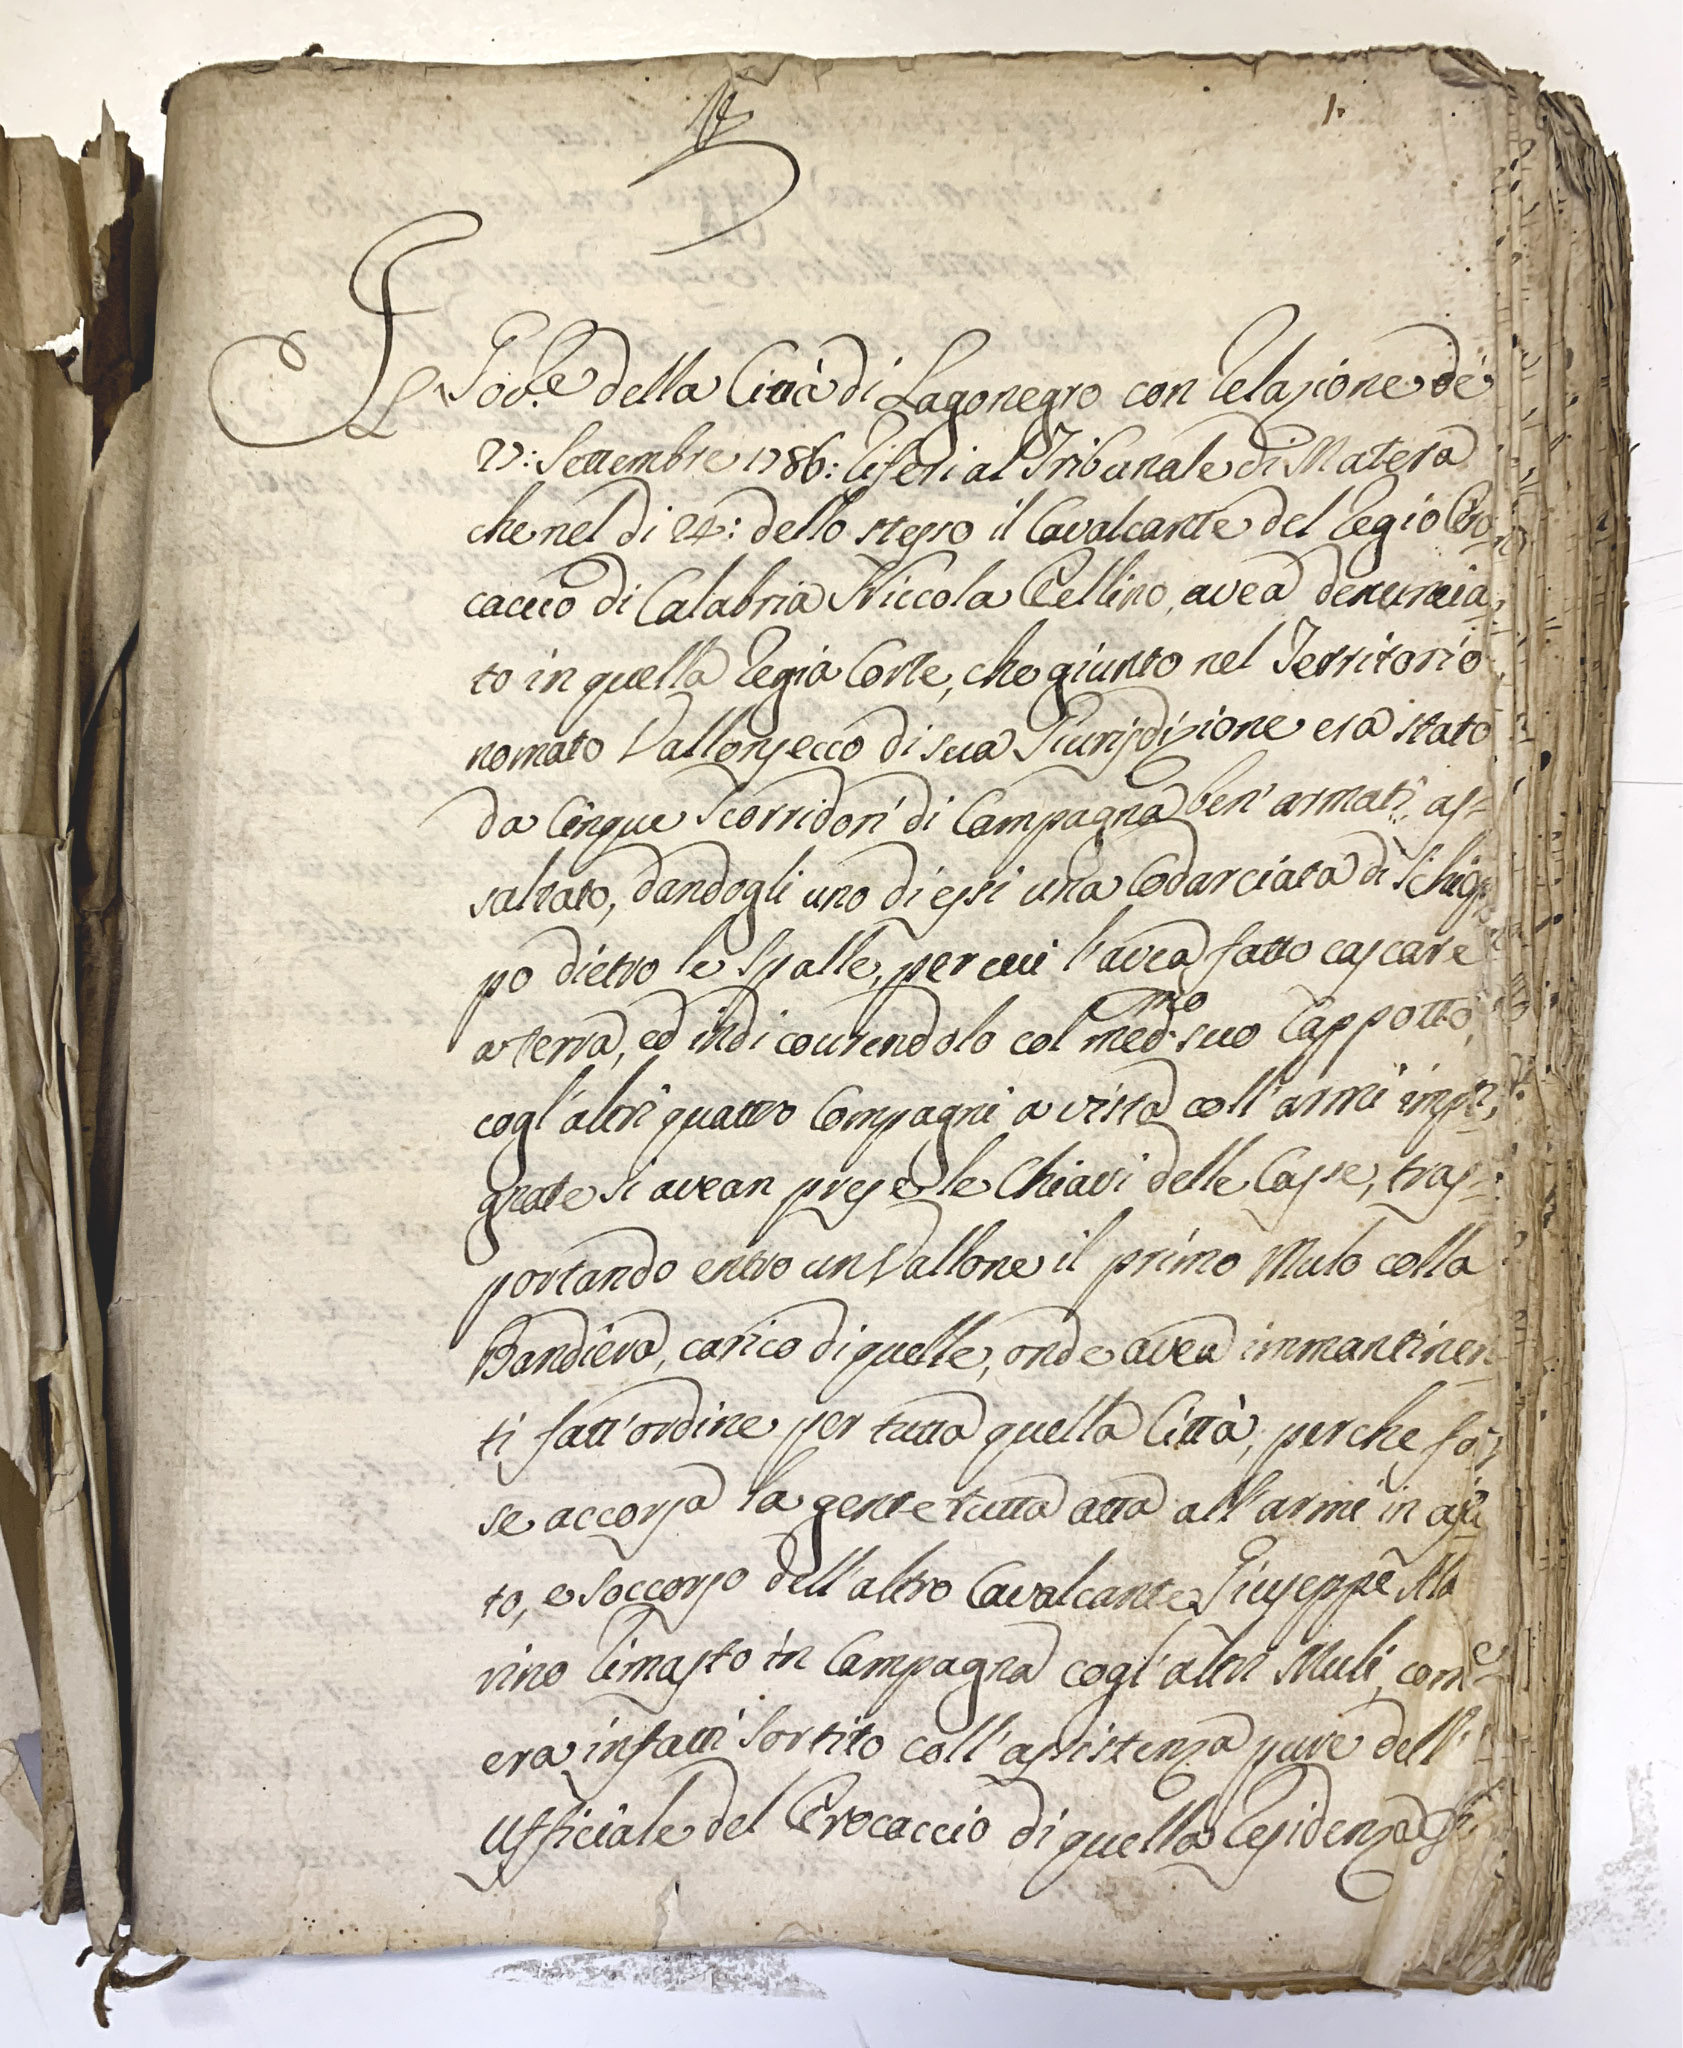 1.
Il Gov.e della Città di Lagonegro con Relazione de'
27: Settembre 1786: riferì al Tribunale di Matera
che nel dì 24: dello stesso il Cavalcante del Regio Pro
caccio di Calabria Niccola Cellino, avea denuncia,
to in quella Regia Corte, che giunto nel Territorio
nomato Vallonsecco di sua Giurisdizione era stato
da Cinque Scorridori di Campagna ben'armati, as=
saltato, dandogli uno di essi una Codarciata di Schiop
po dietro le Spalle, per cui l'avea fatto cascare
a terra, ed indi covrendolo col med.mo suo Cappotto,
cogl'altri quattro Compagni a vista coll'armi impu,
gnate si avean prese le Chiavi delle Casse, tras=
portando entro un Vallone il primo Mulo colla
Bandiera, carico di quelle, onde avea immantinen
ti fatt'ordine per tutta quella Città, perche fos,
se accorsa la gente tutta atta all'armi in aju
to, e soccorso dell'altro Cavalcante Giuseppe Ma
rino rimasto in Campagna cogl'altri Muli, com'
era infatti sortito coll'assistenza pure dell'
Ufficiale del Procaccio di quella Residenza